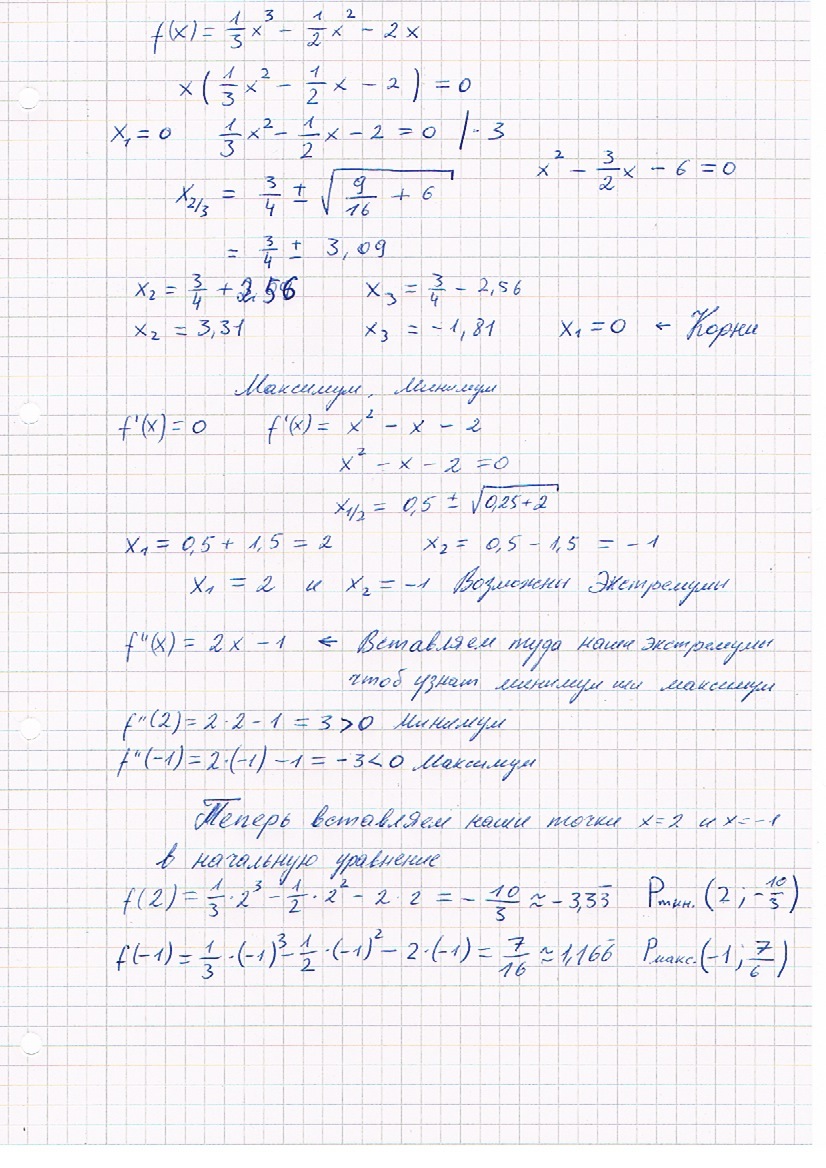 f(x) = 1/3 x³ - 1/2 x² - 2x
x ( 1/3 x² - 1/2 x - 2 ) = 0
x₁ = 0   1/3 x² - 1/2 x - 2 = 0 | · 3
x² - 3/2 x - 6 = 0
x₂/₃ = 3/4 ± √(9/16 + 6)
= 3/4 ± 3,09
x₂ = 3/4 + 2,56   x₃ = 3/4 - 2,56
x₂ = 3,31   x₃ = -1,81   x₁ = 0 ← Корни
Максимум, минимум
f'(x) = 0   f'(x) = x² - x - 2
x² - x - 2 = 0
x₁/₂ = 0,5 ± √(0,25 + 2)
x₁ = 0,5 + 1,5 = 2   x₂ = 0,5 - 1,5 = -1
x₁ = 2 и x₂ = -1 Возможны Экстремумы
f''(x) = 2x - 1 ← Вставляем туда наши экстремумы
чтоб узнат минимум или максимум
f''(2) = 2·2 - 1 = 3 > 0 Минимум
f''(-1) = 2·(-1) - 1 = -3 < 0 Максимум
Теперь вставляем наши точки x=2 и x=-1
в начальную уравнение
f(2) = 1/3 · 2³ - 1/2 · 2² - 2 · 2 = - 10/3 ≈ -3,33̅   Pмин. (2 ; -10/3)
f(-1) = 1/3 · (-1)³ - 1/2 · (-1)² - 2 · (-1) = 7/16 ≈ 1,166̅   Pмакс. (-1 ; 7/6)